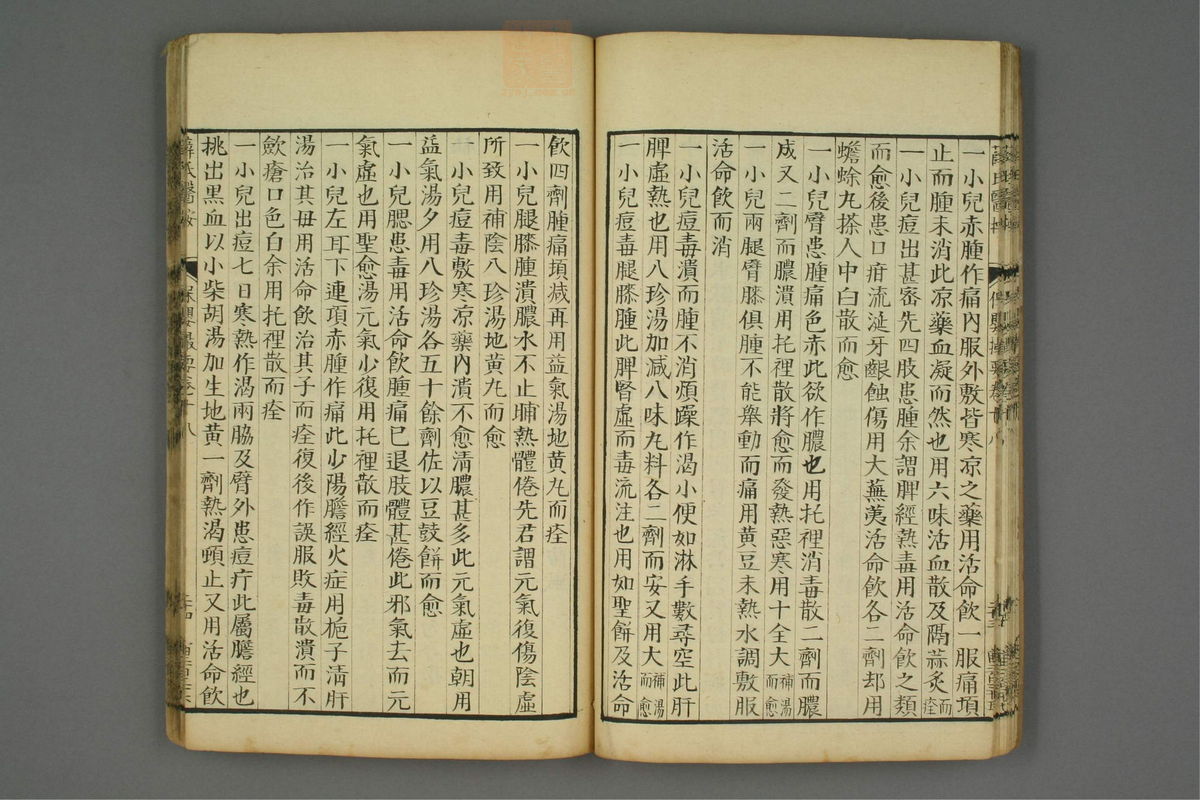 一小兒赤腫作痛內服外敷皆寒凉之藥用活命飲一服痛頓
止而腫未消此凉藥血凝而然也用六味活血散及隔蒜灸而痊
一小兒痘出甚密先四肢患腫余謂脾經熱毒用活命飲之類
而愈後患口疳流涎牙齦蝕傷用大蕪荑活命飲各二劑却用
蟾蜍丸搽人中白散而愈
一小兒臂患腫痛色赤此欲作膿也用托裡消毒散二劑而膿
成又二劑而膿潰用托裡散將愈而發熱惡寒用十全大補湯而愈
一小兒兩腿臂膝俱腫不能舉動而痛用黄豆末熱水調敷服
活命飲而消
一小兒痘毒潰而腫不消煩躁作渴小便如淋手數尋空此肝
脾虛熱也用八珍湯加減八味丸料各二劑而安又用大補湯而愈
一小兒痘毒腿膝腫此脾腎虛而毒流注也用如聖餅及活命
飲四劑腫痛頓减再用益氣湯地黄丸而痊
一小兒腿膝腫潰膿水不止晡熱體倦先君謂元氣復傷陰虛
所致用補陰八珍湯地黄丸而愈
一小兒痘毒敷寒凉藥內潰不愈清膿甚多此元氣虛也朝用
益氣湯夕用八珍湯各五十餘劑佐以豆豉餅而愈
一小兒腮患毒用活命飲腫痛已退肢體甚倦此邪氣去而元
氣虛也用聖愈湯元氣少復用托裡散而痊
一小兒左耳下連項赤腫作痛此少陽膽經火症用梔子清肝
湯治其母用活命飲治其子而痊復後作誤服敗毒散潰而不
歛瘡口色白余用托裡散而痊
一小兒出痘七日寒熱作渴兩脇及臂外患痘疔此屬膽經也
挑出黑血以小柴胡湯加生地黄一劑熱渴頓止又用活命飲
薛氏醫按 保嬰撮要卷十八